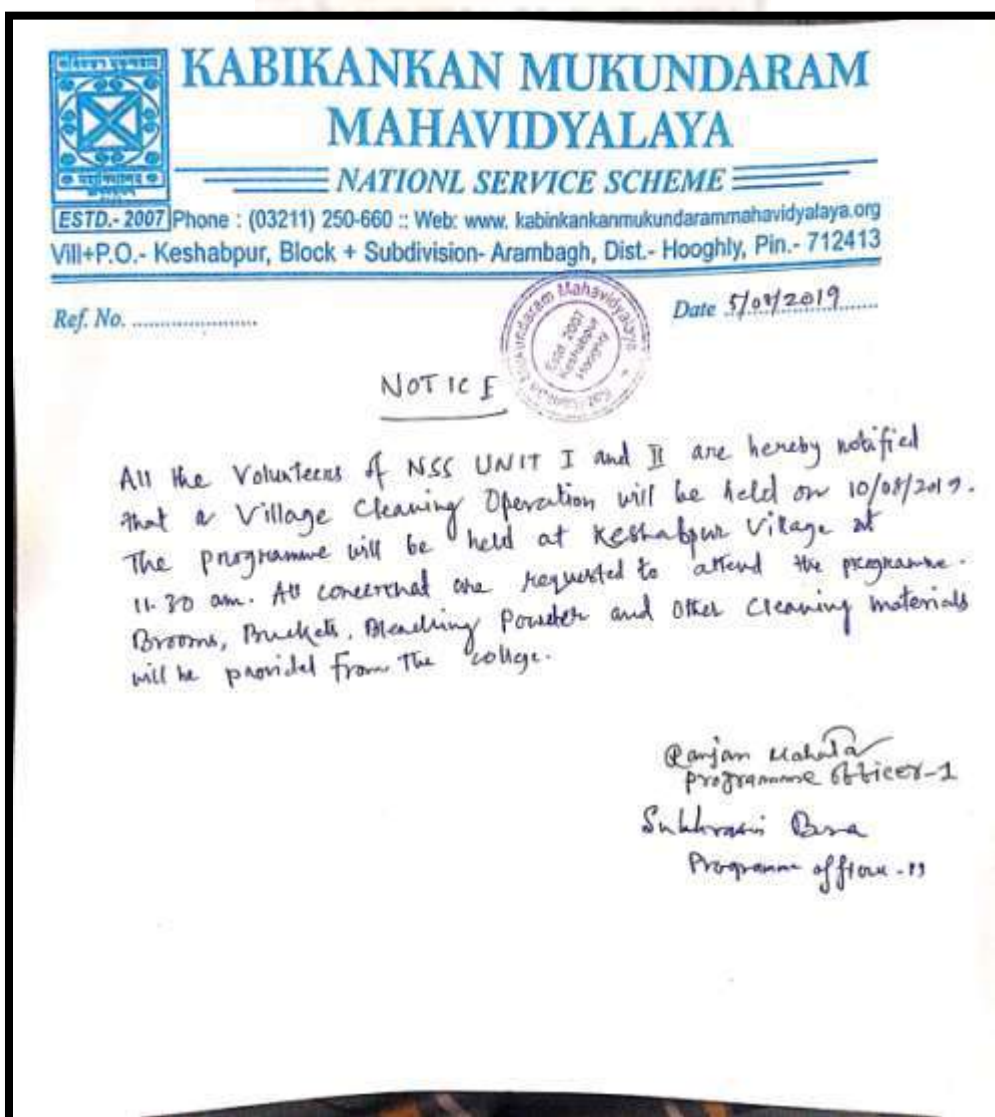 KABIKANKAN MUKUNDARAM
MAHAVIDYALAYA
NATIONL SERVICE SCHEME
ESTD.- 2007 Phone : (03211) 250-660 :: Web: www. kabinkankanmukundarammahavidyalaya.org
Vill+P.O.- Keshabpur, Block + Subdivision- Arambagh, Dist.- Hooghly, Pin.- 712413
Ref. No. ........................ Date 5/08/2019
Mukundaram Mahavidyalaya
Estd. 2007
Keshabpur
Hooghly
NOTICE
All the Volunteers of NSS UNIT I and II are hereby notified
that a Village Cleaning Operation will be held on 10/08/2019.
The programme will be held at Keshabpur Village at
11.30 am. All are requested to attend the programme.
Brooms, Buckets, Bleaching Powder and other Cleaning materials
will be provided from The college.
Ranjan Mahata
Programme Officer-1
Programme officer - II